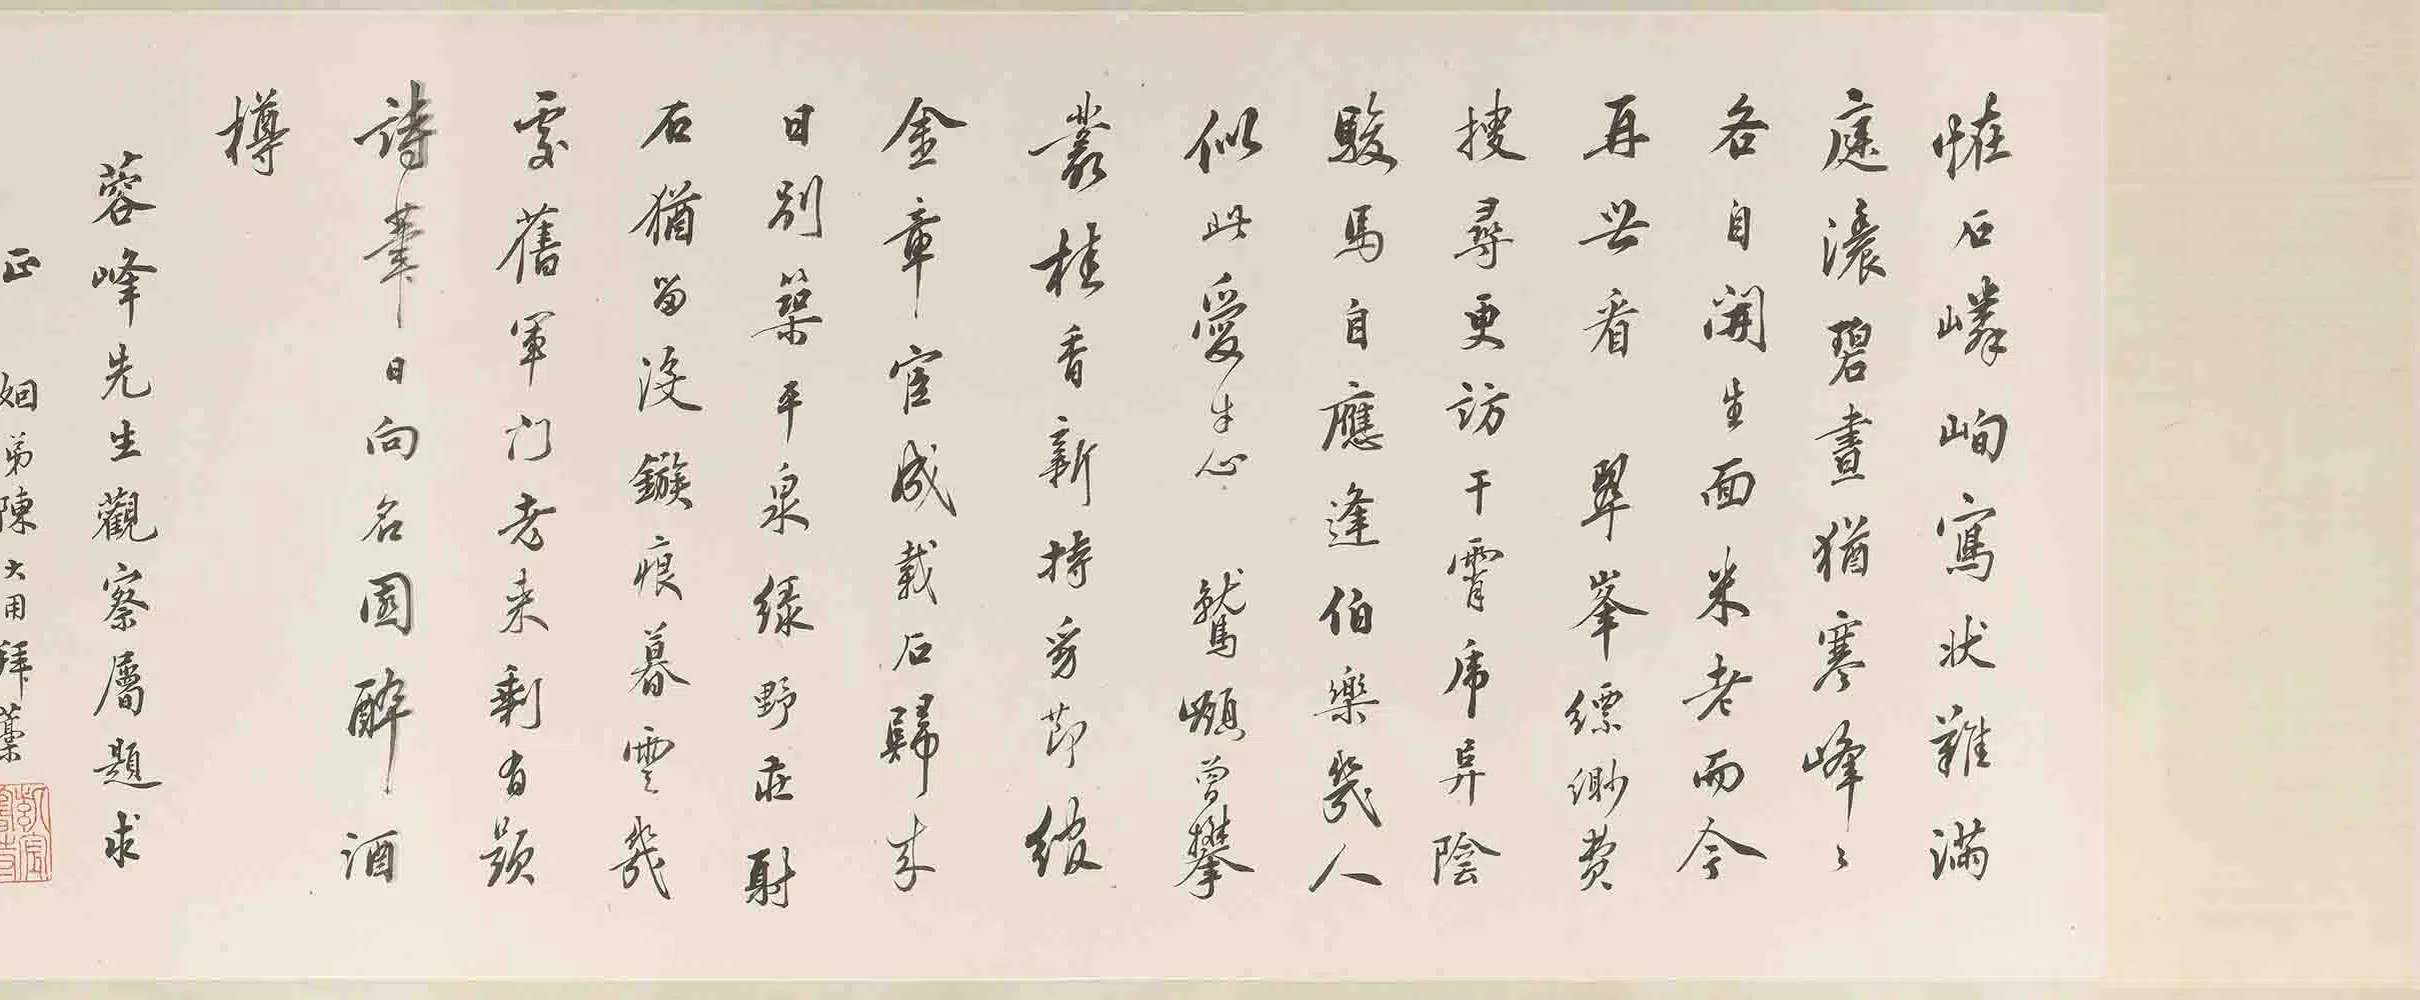 恠石嶙峋寫狀難滿
庭濃碧晝猶寒峰〻
各自開生面米老而今
再世看　翠峯縹緲費
搜尋更訪干霄虎阜陰
駿馬自應逢伯樂幾人
似此愛才心　鷲嶺曾攀
叢桂香新持節綰
金章官成載石歸來
日別築平泉綠野莊　射
石猶留沒鏃痕暮雲幾
處舊軍門老來剩有題
詩筆日向名園酹酒
樽
蓉峰先生觀察屬題求
正　姻弟陳大用拜藁